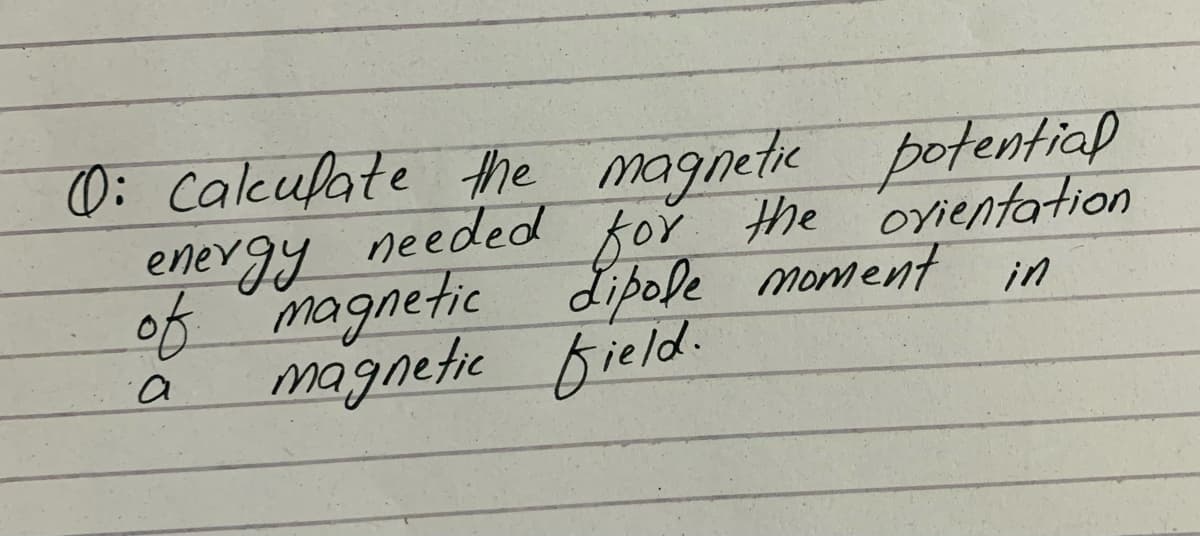 Q: Calculate the magnetic potential
energy needed for the orientation
of magnetic dipole moment in
a magnetic field.